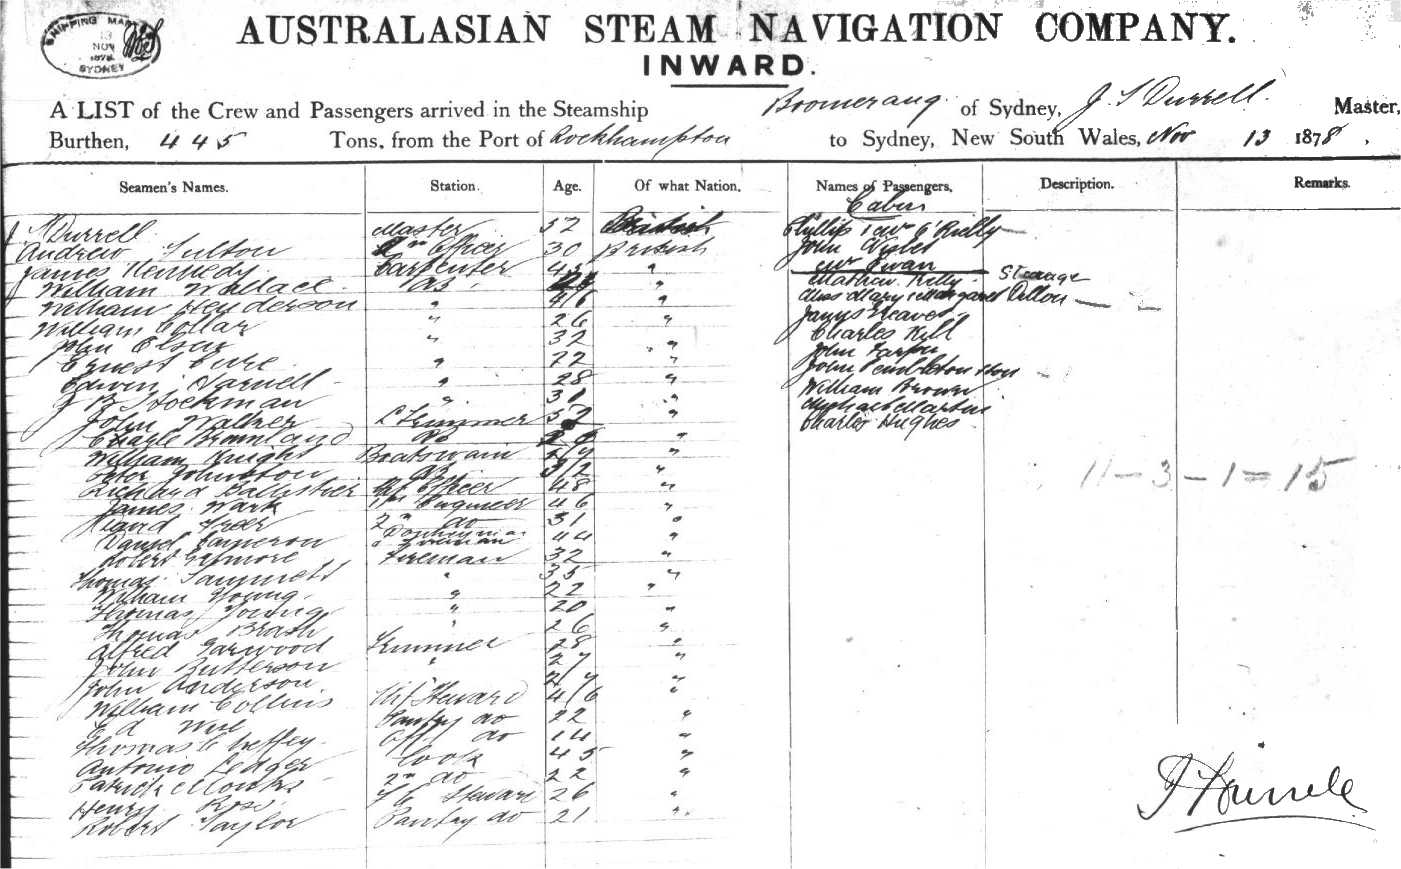 SHIPPING MAS
13
NOV
1878
SYDNEY
AUSTRALASIAN STEAM NAVIGATION COMPANY.
INWARD.
A LIST of the Crew and Passengers arrived in the Steamship Boomerang of Sydney, J S Durrell Master,
Burthen, 445 Tons, from the Port of Rockhampton to Sydney, New South Wales, Nov 13 1878.
Seamen's Names. Station. Age. Of what Nation. Names of Passengers. Description. Remarks.
Cabin
J S Durrell Master 52 British Phillip O'Reilly
Andrew Fulton Officer 30 British John
James Kennedy Carpenter 43 " Mr Ewan Steerage
William Wallace AB " Mathew Kelly
William Henderson " 46 " Miss Mary Margaret Dillon
William Collar " 26 " James
John Olsen " 32 " Charles Hill
Ernest " 22 " John
Edwin Darnell " 28 " John Pembleton
J B Stockman " 31 " William Brown
John Walker L Trimmer 52 " Michael Martin
Brownland do " Charles Hughes
William Knight Boatswain 27 "
Peter Johnston AB 32 "
Richard Ch Officer 48 "
James Wark 1st Engineer 46 "
Freer 2nd do 31 "
Daniel Cameron Donkeyman & Fireman 44 "
Robert Gilmore Fireman 32 "
Thomas " 35 "
William Young " 22 "
Thomas Young " 20 "
Thomas Brash " 26 "
Alfred Garwood Trimmer 28 "
John Butterson " 27 "
John Anderson 27 "
William Collins Chf Steward 46 "
Ed Pantry do 22 "
Thomas do 14 "
Antonio Ledger Cook 45 "
Patrick 2nd do 22 "
Henry Ross F C Steward 26 "
Robert Taylor Pantry do 21 "
11 - 3 - 1 = 15